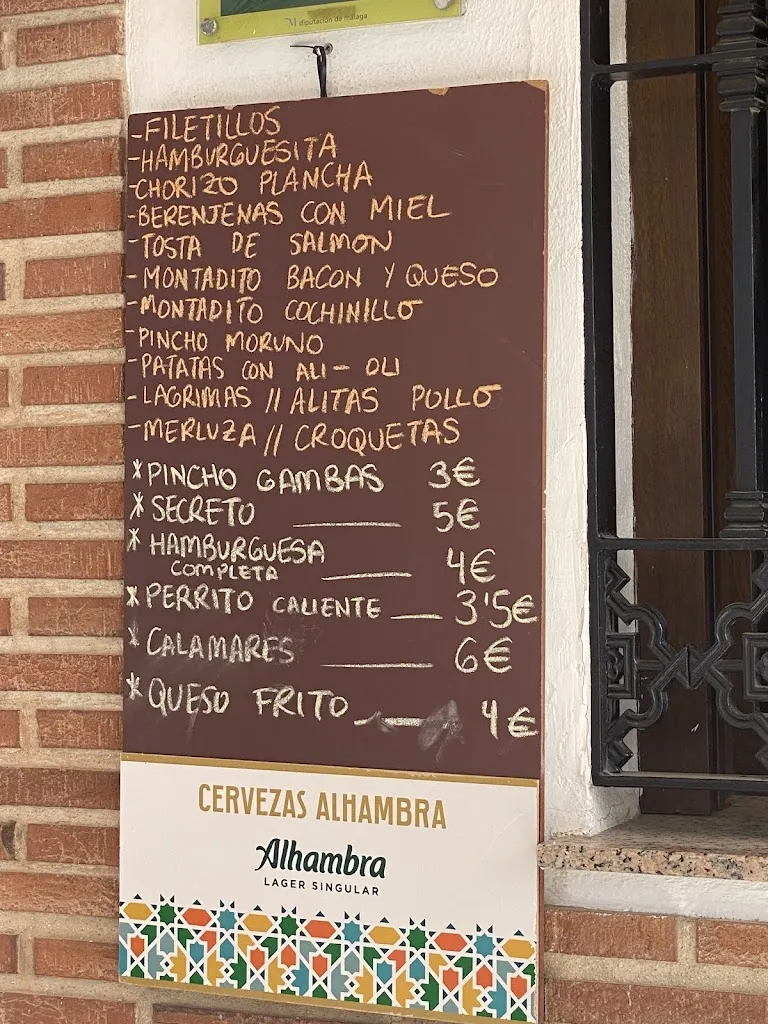 M diputación de málaga
-FILETILLOS
-HAMBURGUESITA
-CHORIZO PLANCHA
-BERENJENAS CON MIEL
-TOSTA DE SALMON
-MONTADITO BACON Y QUESO
-MONTADITO COCHINILLO
-PINCHO MORUNO
-PATATAS CON ALI-OLI
-LAGRIMAS // ALITAS POLLO
-MERLUZA // CROQUETAS
*PINCHO GAMBAS 3€
*SECRETO — 5€
*HAMBURGUESA
COMPLETA — 4€
*PERRITO CALIENTE — 3'5€
*CALAMARES — 6€
*QUESO FRITO — 4€
CERVEZAS ALHAMBRA
Alhambra
LAGER SINGULAR